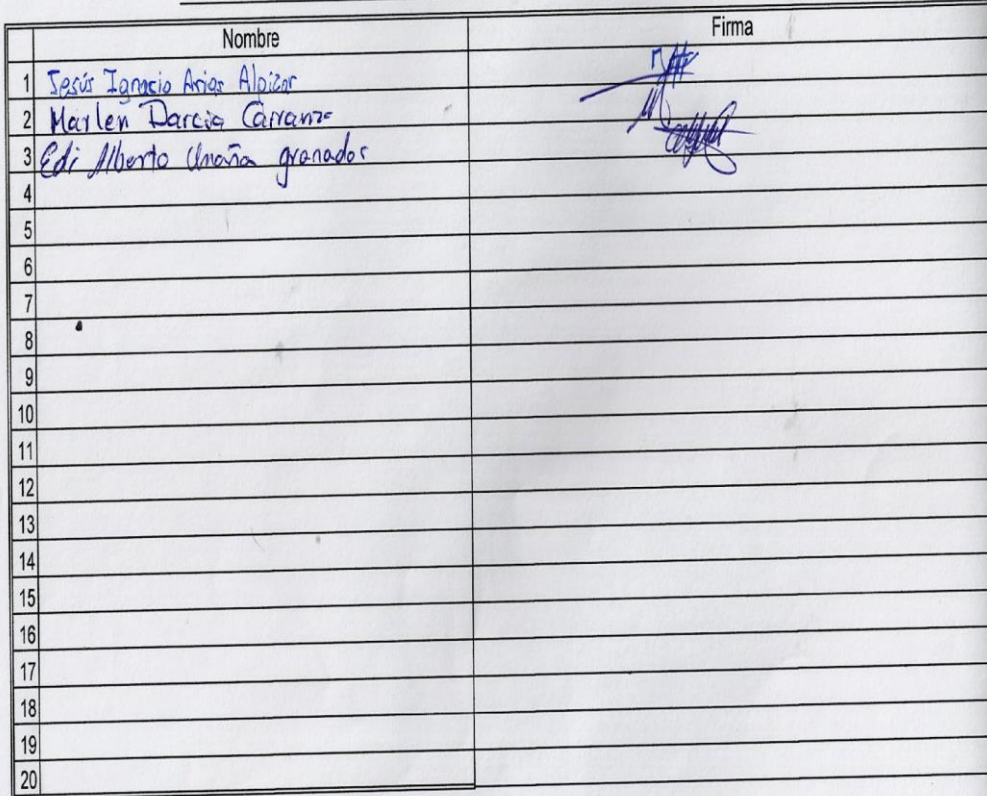 Nombre Firma
1 Jesús Ignacio Arias Alpizar
2 Marlen Darcia Carranza
3 Edi Alberto Umaña granados
4
5
6
7
8
9
10
11
12
13
14
15
16
17
18
19
20